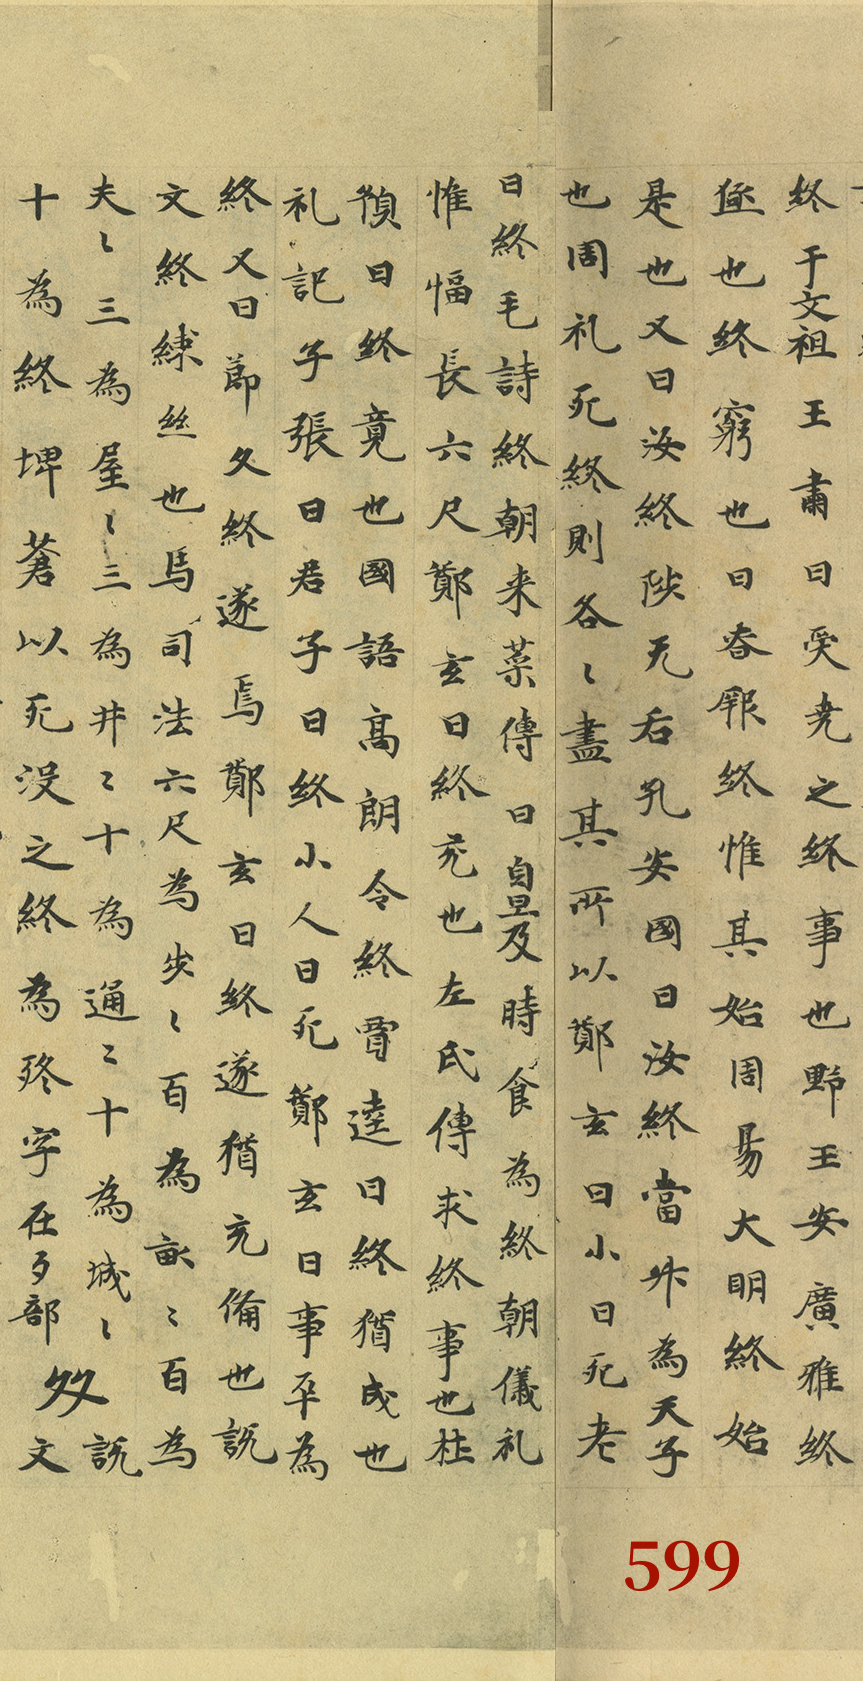 終于文祖王肅曰受尭之終事也野王安廣雅終
極也終窮也曰舂郹終惟其始周易大明終始
是也又曰汝終陟元后孔安國曰汝終當升為天子
也周礼死終則各〻盡其所以鄭玄曰小曰死老
曰終毛詩終朝来菜傳曰自旦及時食為終朝儀礼
惟幅長六尺鄭玄曰終充也左氏傳求終事也杜
預曰終竟也國語髙朗令終賈逵曰終猶成也
礼記子張曰君子曰終小人曰死鄭玄曰事卒為
終又曰節乆終遂焉鄭玄曰終遂猶充俻也說
文終練絲也馬司法六尺為步〻百為畝〻百為
夫〻三為屋〻三為井〻十為通〻十為城〻
十為終埤蒼以死没之終為殔字在歹部
夂文說
599